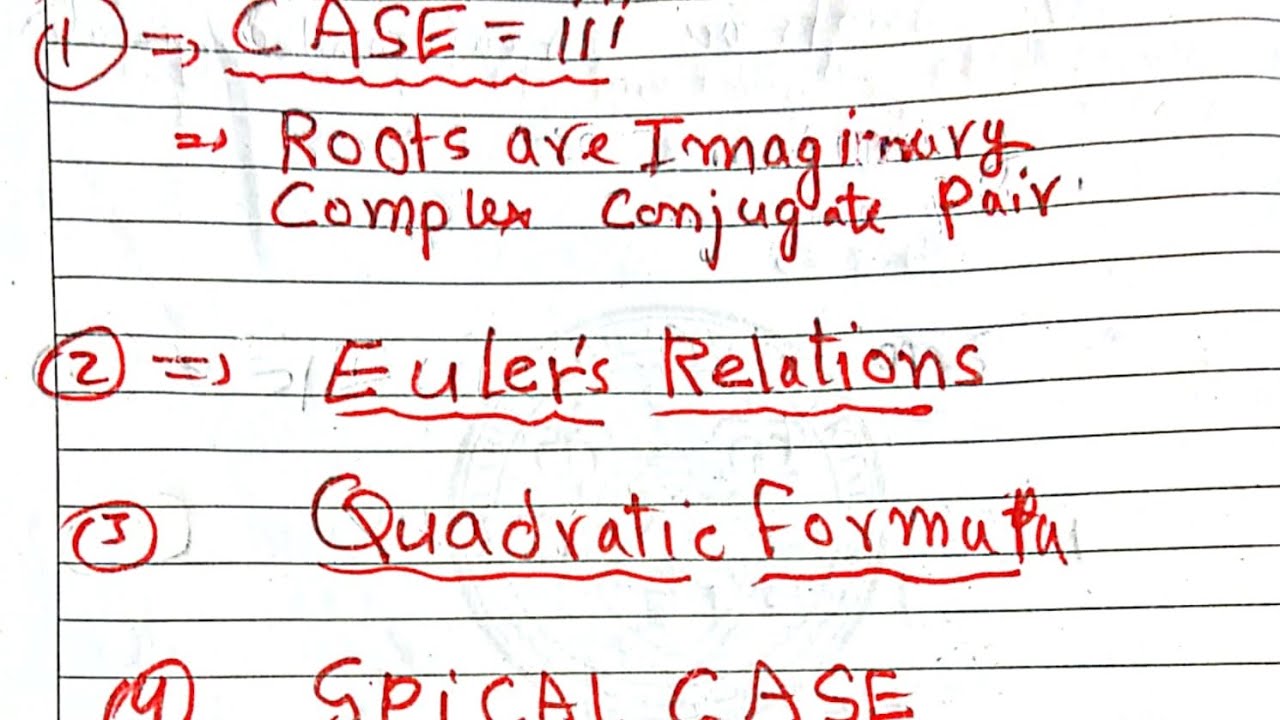 ① => CASE = iii
=> Roots are Imaginary
Complex Conjugate Pair.
② => Euler's Relations
③ Quadratic Formula
④ SPiCAL CASE